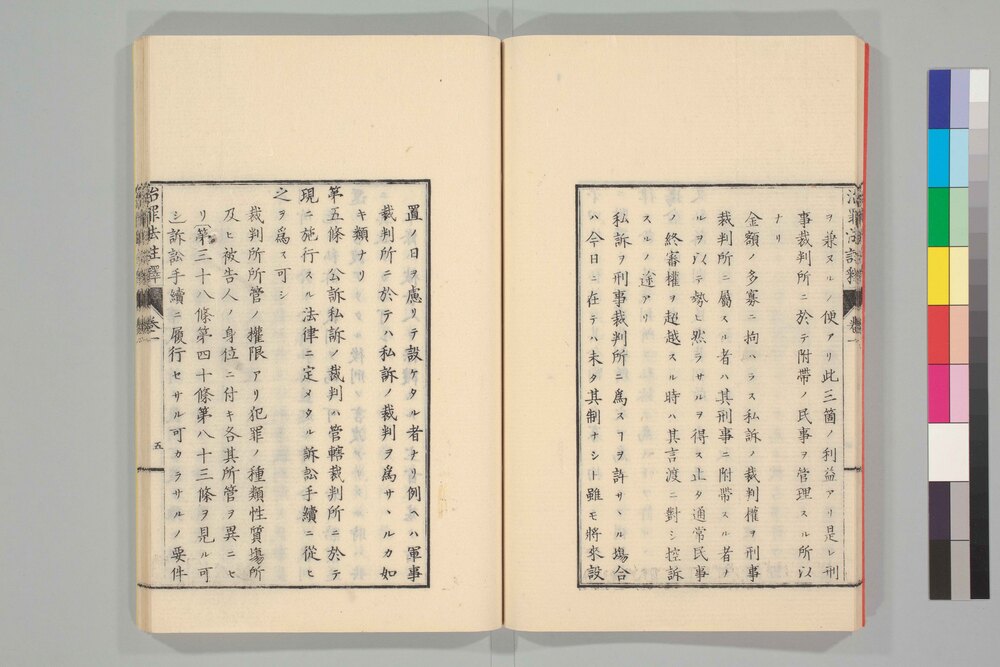 ヲ兼ヌルノ便アリ此三箇ノ利益アリ是レ刑
事裁判所ニ於テ附帶ノ民事ヲ管理スル所以
ナリ
金額ノ多寡ニ拘ハラス私訴ノ裁判權ヲ刑事
裁判所ニ屬スル者ハ其刑事ニ附帶スル者ナ
ルヲ以テ勢ヒ然ラサルヲ得ス止タ通常民事
ノ終審權ヲ超越スル時ハ其言渡ニ對シ控訴
スルノ途アリ
私訴ヲ刑事裁判所ニ爲スヿヲ許サヽル塲合
ハ今日ニ在テハ未タ其制ナシト雖モ將來設
治罪法註釋 卷一
置ノ日ヲ慮リテ設ケタル者ナリ例ヘハ軍事
裁判所ニ於テハ私訴ノ裁判ヲ爲サヽルカ如
キ類ナリ
第五條 公訴私訴ノ裁判ハ管轄裁判所ニ於テ
現ニ施行スル法律ニ定メタル訴訟手續ニ從ヒ
之ヲ爲ス可シ
裁判所所管ノ權限アリ犯罪ノ種類性質塲所
及ヒ被告人ノ身位ニ付キ各其所管ヲ異ニセ
リ第三十八條第四十條第八十三條ヲ見ル可
シ訴訟手續ニ履行セサル可カラサルノ要件
治罪法註釋 卷一 五